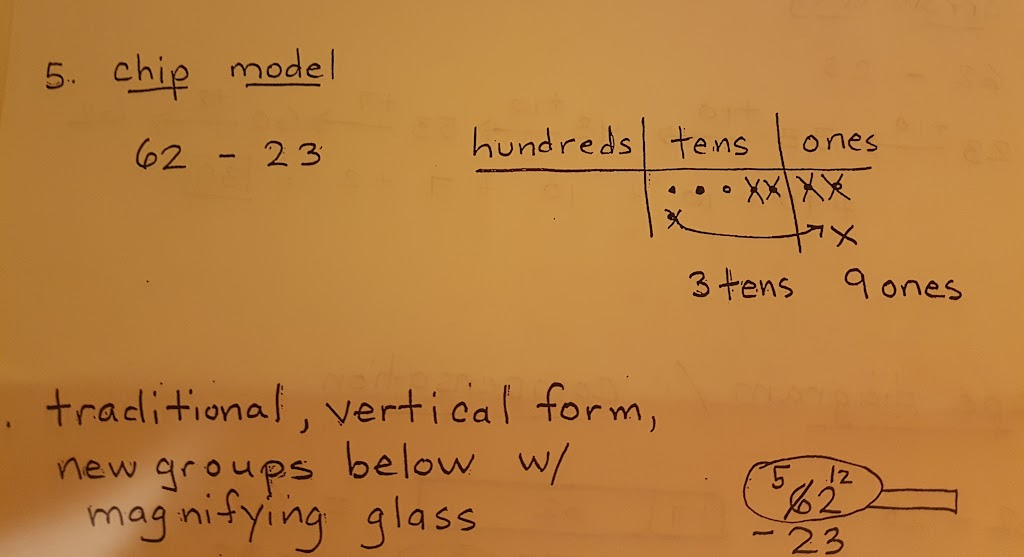 5. chip model
62 - 23
hundreds tens ones
3 tens 9 ones
traditional, vertical form,
new groups below w/
magnifying glass
5 12
62
- 23